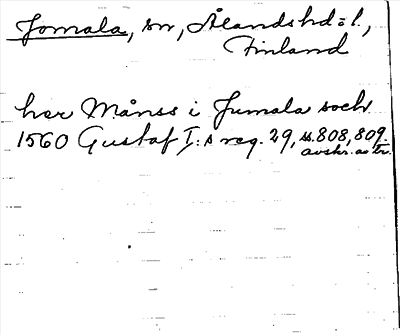 Jomala, sn, Ålandshd o l.,
Finland
her Månss i Jumala sochn
1560 Gustaf I:s reg. 29, ss. 808, 809.
avskr. av tr.